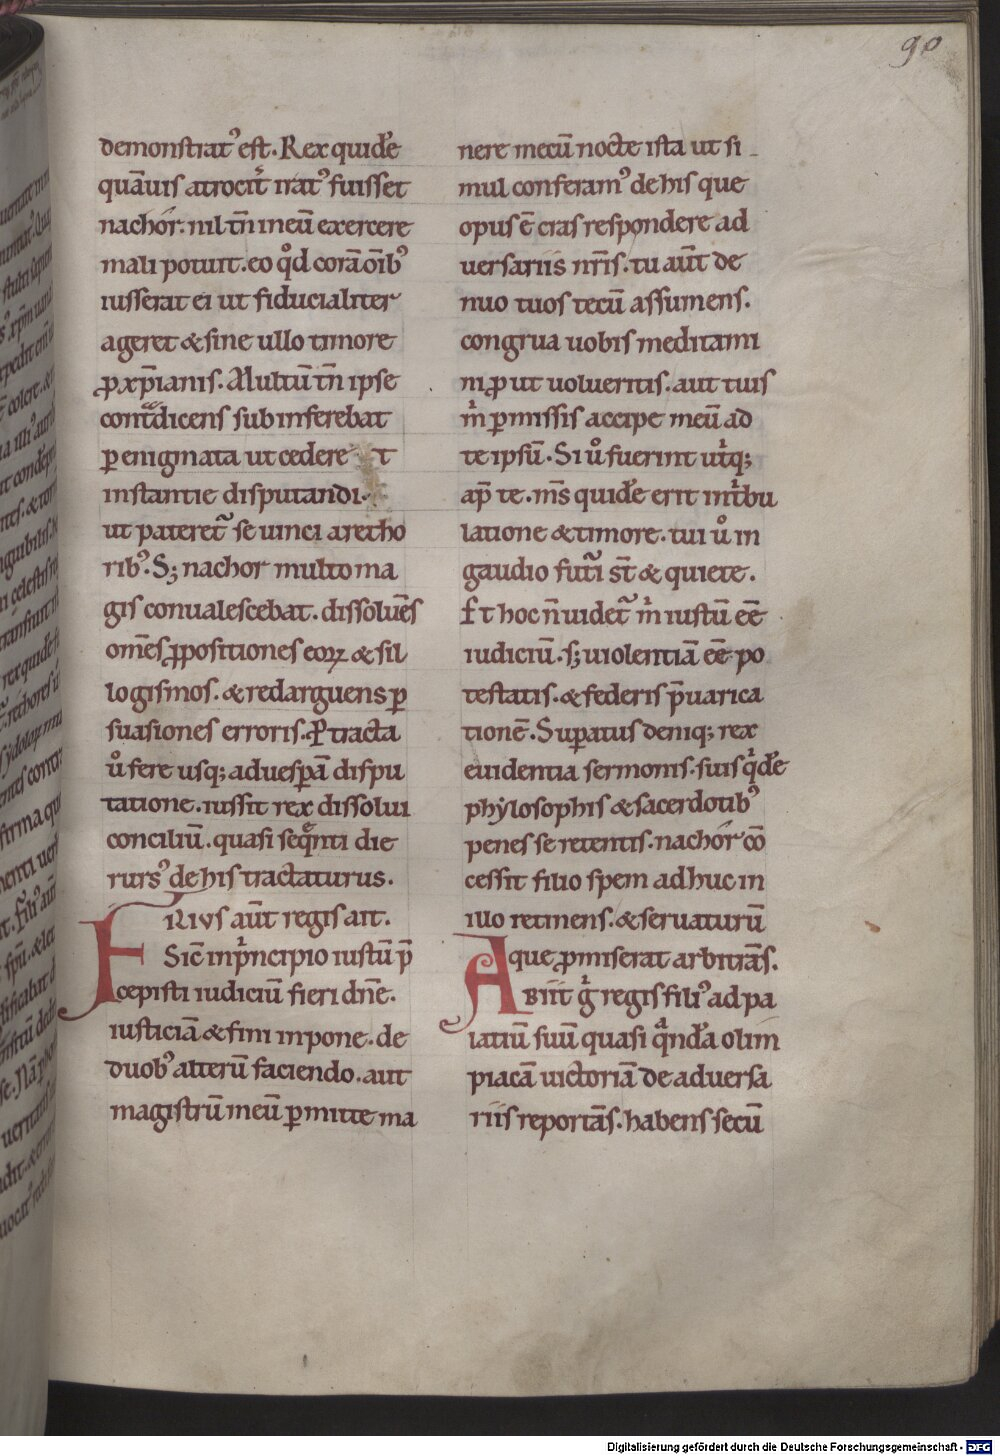 90
demonstrat᾽ est. Rex quidē
quāuis atrocit̄ irat᾽ fuisset
nachor. nil tn̄ in eū exercere
mali potuit. eo qd̓ corā oīb᾽
iusserat ei ut fiducialiter
ageret & sine ullo timore
ꝓ xp̄ianis. Multū tn̄ ipse
contᷓdicens subinferebat
ꝑ enigmata ut cederet
instantie disputandi.
ut pateret᷑ se uinci a retho
rib᾽. Sꝫ nachor multo ma
gis conualescebat. dissoluēs
om̄es ꝓpositiones eoꝝ & sil
logismos. & redarguens ꝑ
suasiones erroris. Ptracta
u̓ fere usqꝫ ad uesꝑā dispu
tatione. iussit rex dissolui
conciliū. quasi seqᷓnti die
rurs᾽ de his tractaturus.
FILIVS aūt regis ait.
Sic̄ in pͥncipio iustū p̄
cepisti iudiciū fieri dn̄e.
iusticiā & fini inpone. de
duob᾽ alterū faciendo. aut
magistrū meū ꝑmitte ma
nere mecū nocte ista ut si
mul conferam᾽ de his que
opus ē cras respondere ad
uersariis nr̄is. tu aūt de
nuo tuos tecū assumens.
congrua uobis meditami
ni ꝓut uolueritis. aut tuis
m̊ ꝑmissis accipe meū ad
te ipsū. Si u̓ fuerint ut̓qꝫ
ap̄ te. ms̄ quidē erit in tͥbu
latione & timore. tui u̓ in
gaudio futͥ st̄ & quiete.
Et hoc n̄ uidet᷑ m̊ iustū eē
iudiciū. sꝫ uiolentiā eē po
testatis. & federis p̄uarica
tionē. Suꝑatus deniqꝫ rex
euidentia sermonis. suis qͥdē
phylosophis & sacerdotib᾽
penes se retentis. nachor cō
cessit filio spem adhuc in
illo retinens. & seruaturū
que ꝓmiserat arbitrās.
ABIIT gͦ regis fili᾽ ad pa
latiū suū quasi qᷓndā olim
piacā uictoriā de aduersa
riis reportās. habens secū
Digitalisierung gefördert durch die Deutsche Forschungsgemeinschaft - DFG